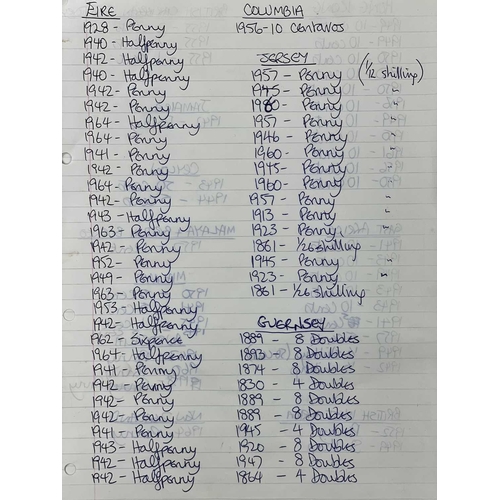 EIRE
1928 - Penny
1940 - Halfpenny
1942 - Halfpenny
1940 - Halfpenny
1942 - Penny
1942 - Penny
1964 - Halfpenny
1964 - Penny
1941 - Penny
1942 - Penny
1964 - Penny
1942 - Penny
1943 - Halfpenny
1963 - Penny
1942 - Penny
1952 - Penny
1949 - Penny
1963 - Penny
1953 - Halfpenny
1942 - Halfpenny
1962 - Sixpence
1964 - Halfpenny
1941 - Penny
1942 - Penny
1942 - Penny
1942 - Penny
1941 - Penny
1943 - Halfpenny
1942 - Halfpenny
1942 - Halfpenny
COLUMBIA
1956 - 10 Centavos
JERSEY
1957 - Penny (1/12 shilling)
1945 - Penny "
1980 - Penny "
1957 - Penny "
1946 - Penny "
1960 - Penny "
1945 - Penny "
1960 - Penny "
1957 - Penny "
1913 - Penny "
1923 - Penny "
1861 - 1/26 shilling
1945 - Penny "
1923 - Penny "
1861 - 1/26 shilling
GUERNSEY
1889 - 8 Doubles
1893 - 8 Doubles
1874 - 8 Doubles
1830 - 4 Doubles
1889 - 8 Doubles
1889 - 8 Doubles
1945 - 4 Doubles
1920 - 8 Doubles
1947 - 8 Doubles
1864 - 4 Doubles